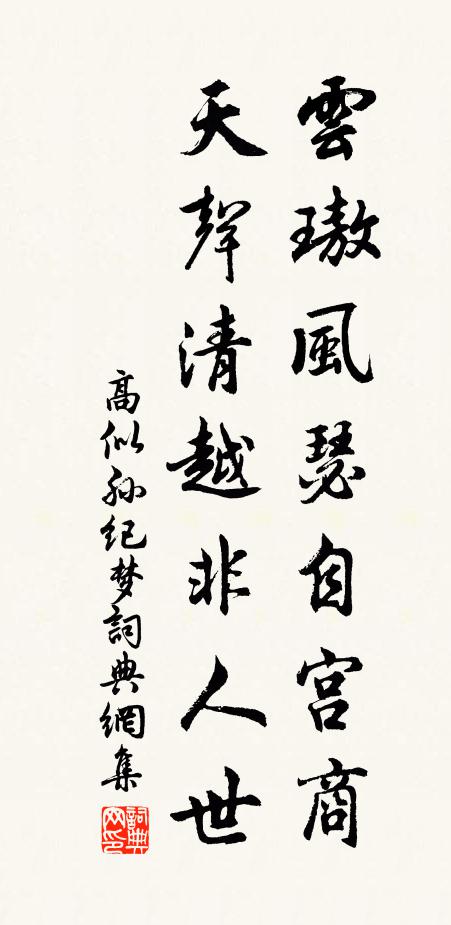 雲璈風瑟自宮商
天聲清越非人世
高似孙纪梦詞典網集
詞典网印